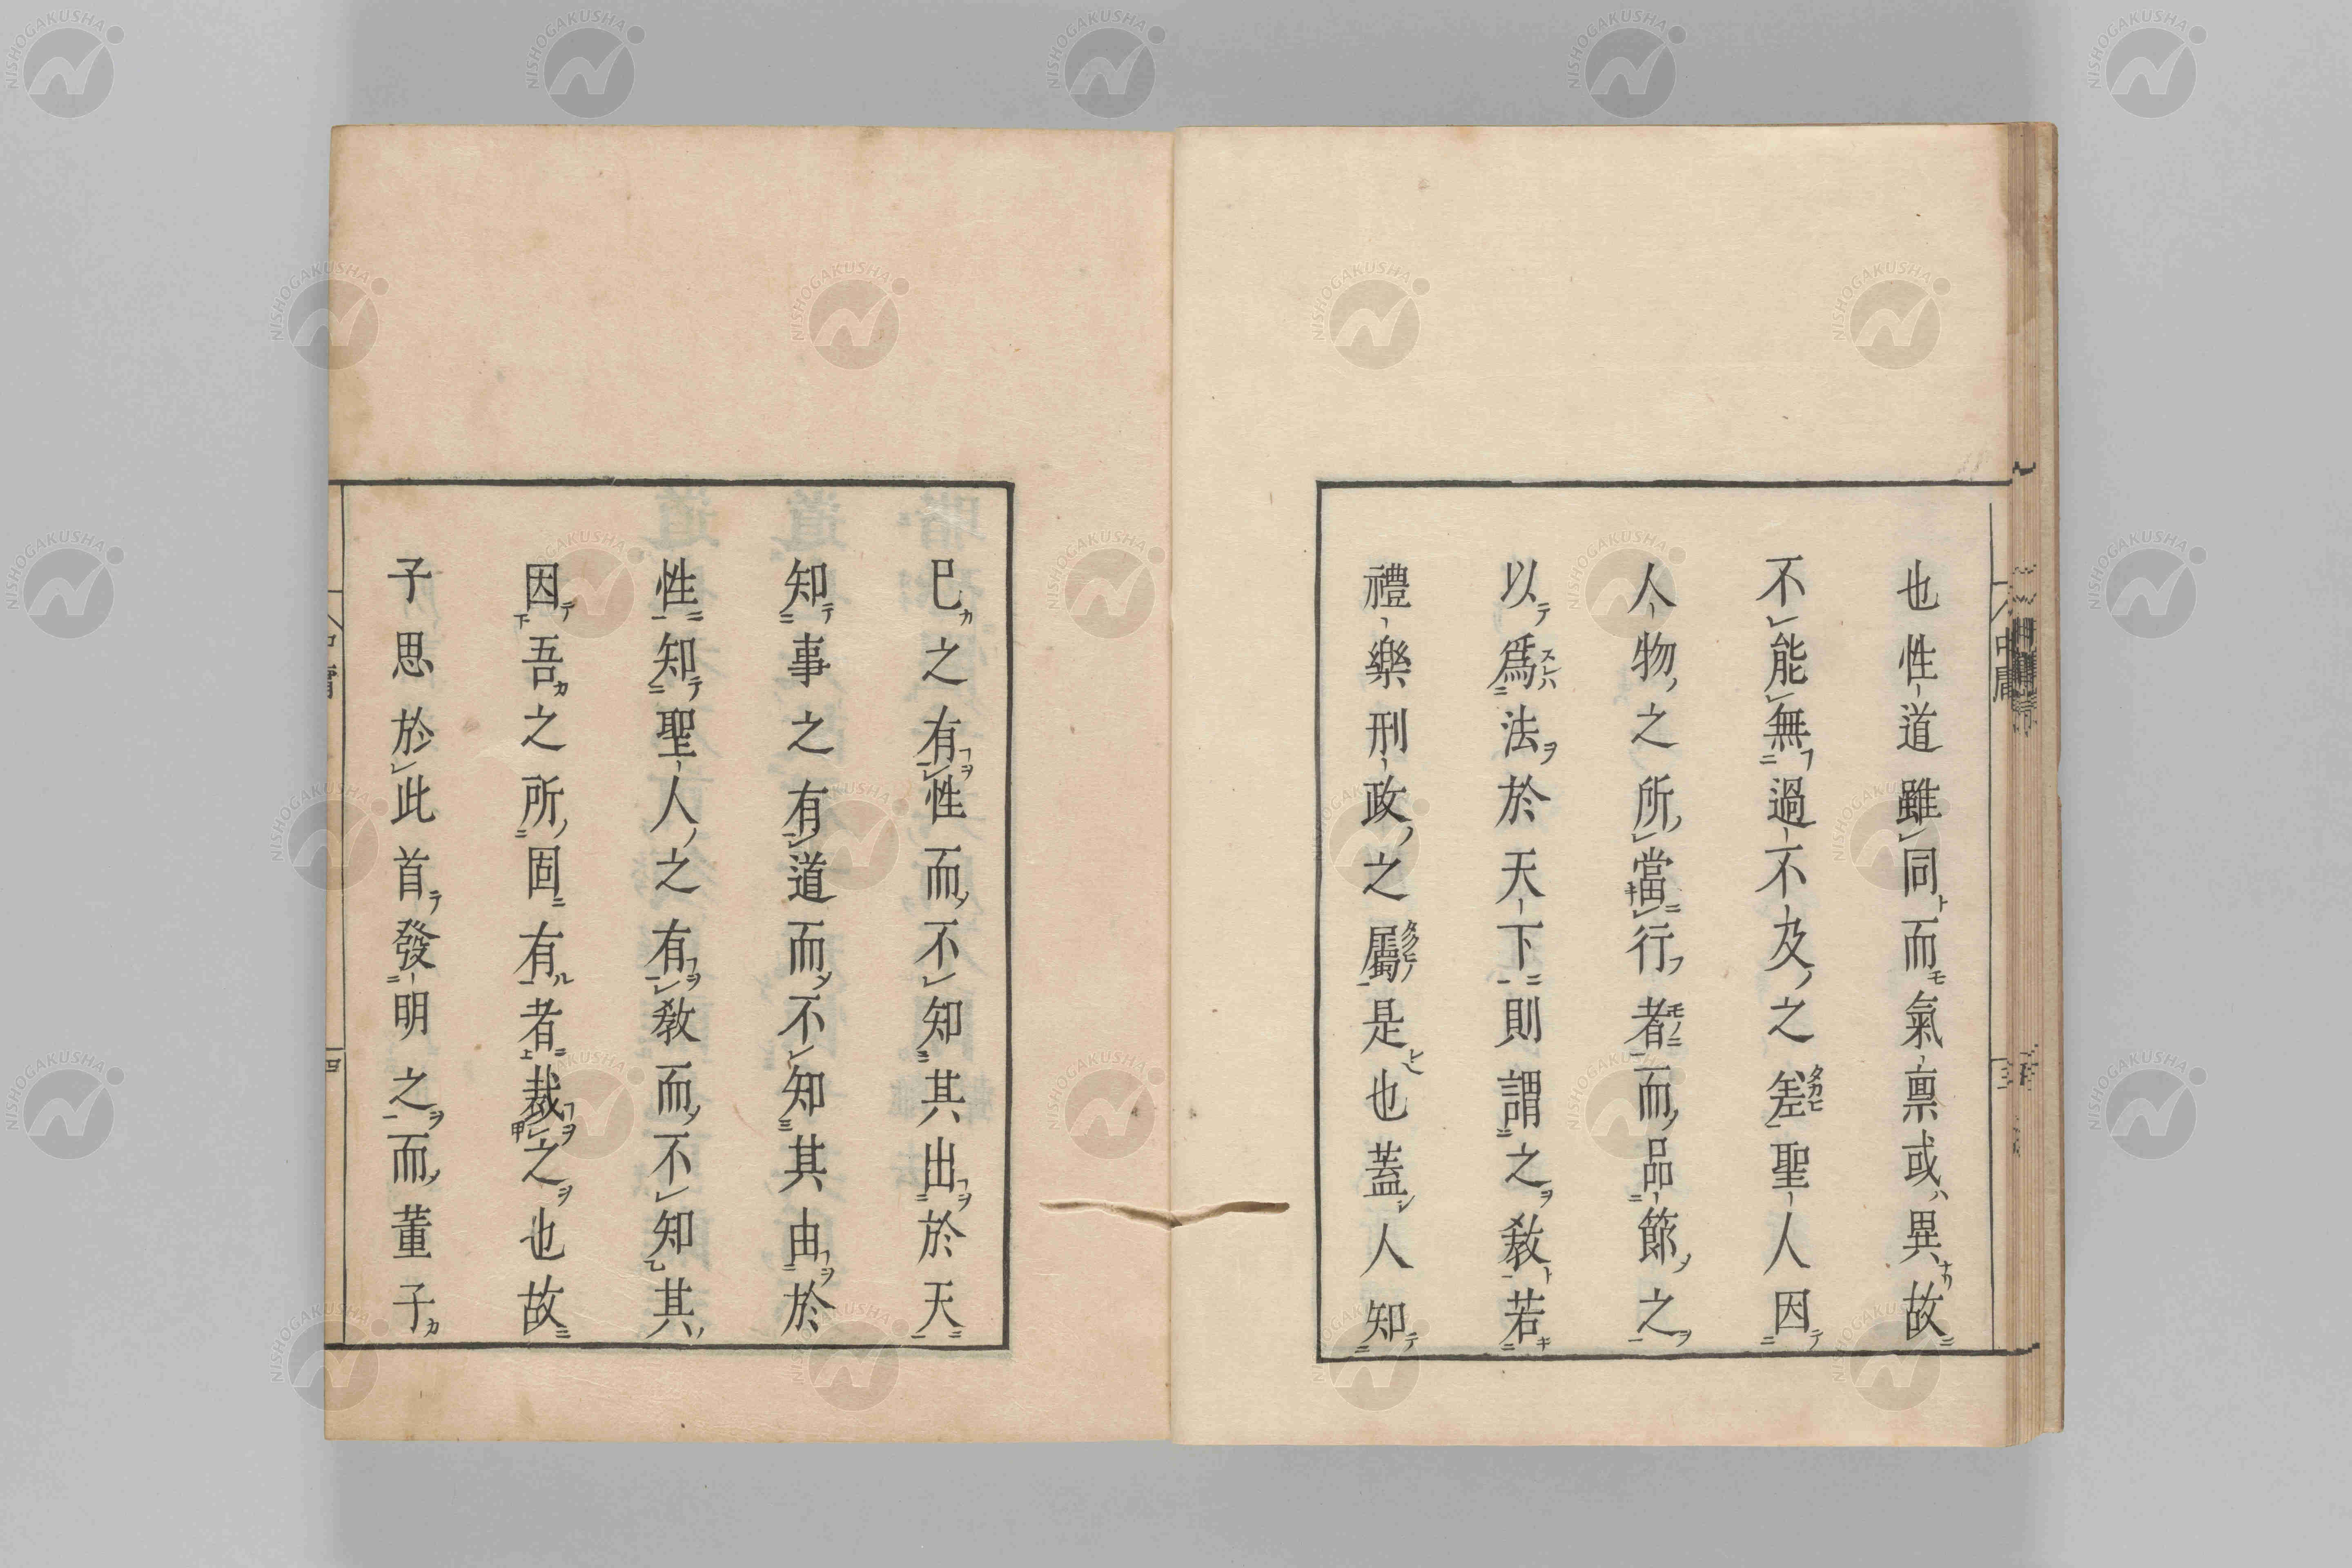 也性道雖同而氣稟或異故
不能無過不及之差聖人因
人物之所當行者而品節之
以爲法於天下則謂之敎若
禮樂刑政之屬是也蓋人知
已之有性而不知其出於天
知事之有道而不知其由於
性知聖人之有敎而不知其
因吾之所固有者裁之也故
子思於此首發明之而董子
中庸
四
NISHOGAKUSHA